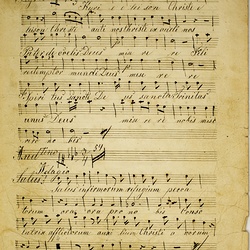 Kyri e e lei son Christe e
leison Christe au di nos Christe ex audi nos
Pater de coelis Deus mi se re re Fili
redemptor mundi Deus mi se re re
Deus sancta Trinitas
unus Deus mi se re re nobis mise
re re no bis
Adagio
Salus Salus infirmorum refugium pecca
torum ora ora pro no bis Conso
latrix afflictorum auxilium Christi a norum